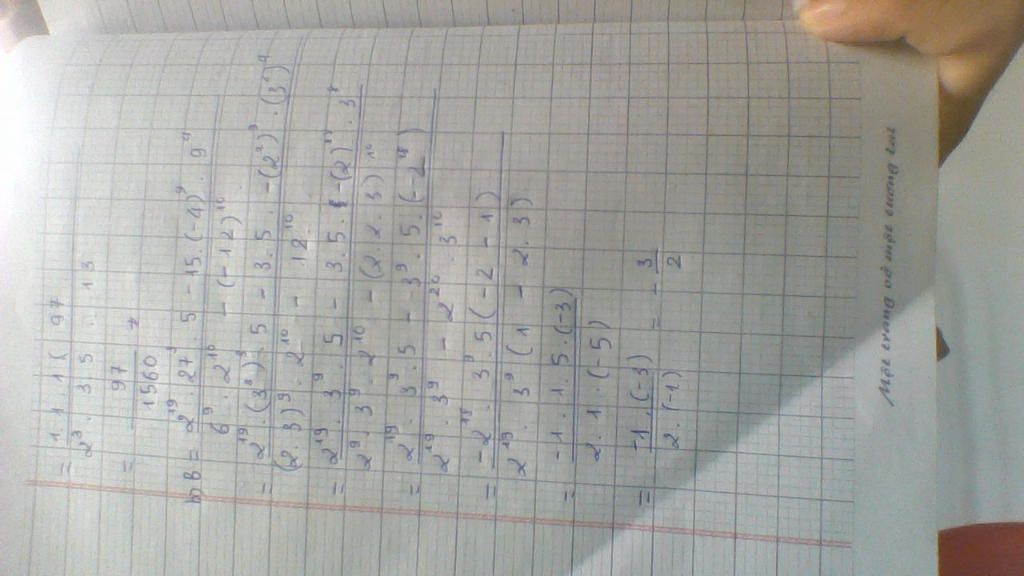 = 1 . 1 . 1 ( 97 / 2³ . 3 5 . 13
= 97 / 1560
b) B = 2¹⁹ . 27³ . 5 - 15 . (-4)⁹ . 9⁴ / 6⁹ . 2¹⁰ - (-12)¹⁰
= 2¹⁹ . (3³)³ . 5 - 3 . 5 . -(2²)⁹ . (3²)⁴ / (2 . 3)⁹ . 2¹⁰ - 12¹⁰
= 2¹⁹ . 3⁹ . 5 - 3 . 5 . -(2)¹⁸ . 3⁸ / 2⁹ . 3⁹ . 2¹⁰ - (2 . 2 . 3)¹⁰
= 2¹⁹ . 3⁹ . 5 - 3⁹ . 5 . (-2¹⁸) / 2¹⁹ . 3⁹ - 2²⁰ . 3¹⁰
= -2¹⁸ . 3⁹ . 5 (-2 - 1) / 2¹⁹ . 3⁹ (1 - 2 . 3)
= -1 . 1 . 5 . (-3) / 2 . 1 . (-5)
= -1 . (-3) / 2 . (-1) = - 3 / 2